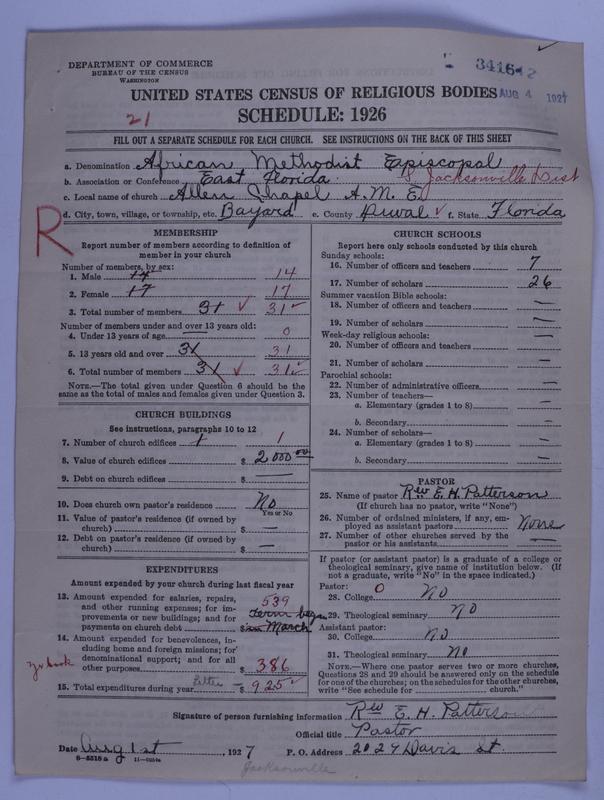 DEPARTMENT OF COMMERCE
BUREAU OF THE CENSUS
WASHINGTON
3416-2
AUG 4 1927
UNITED STATES CENSUS OF RELIGIOUS BODIES
SCHEDULE: 1926
21
FILL OUT A SEPARATE SCHEDULE FOR EACH CHURCH. SEE INSTRUCTIONS ON THE BACK OF THIS SHEET
a. Denomination African Methodist Episcopal
b. Association or Conference East Florida S. Jacksonville Dist
c. Local name of church Allen Chapel A. M. E.
d. City, town, village, or township, etc. Bayard e. County Duval ✓ f. State Florida
R
MEMBERSHIP
Report number of members according to definition of
member in your church
Number of members, by sex:
1. Male 14 14
2. Female 17 17
3. Total number of members 31 ✓ 31 ✓
Number of members under and over 13 years old:
4. Under 13 years of age — 0
5. 13 years old and over 31 31
6. Total number of members 31 ✓ 31 ✓
NOTE.—The total given under Question 6 should be the
same as the total of males and females given under Question 3.
CHURCH BUILDINGS
See instructions, paragraphs 10 to 12
7. Number of church edifices 1 1
8. Value of church edifices $ 2000 00
9. Debt on church edifices $ —
10. Does church own pastor's residence No
Yes or No
11. Value of pastor's residence (if owned by
church) $ —
12. Debt on pastor's residence (if owned by
church) $ —
EXPENDITURES
Amount expended by your church during last fiscal year
13. Amount expended for salaries, repairs,
and other running expenses; for im-
provements or new buildings; and for
payments on church debt
539
term began
in March
14. Amount expended for benevolences, in-
cluding home and foreign missions; for
denominational support; and for all
other purposes $ 386
Yr book
15. Total expenditures during year $ 925 ✓
CHURCH SCHOOLS
Report here only schools conducted by this church
Sunday schools:
16. Number of officers and teachers 7
17. Number of scholars 26
Summer vacation Bible schools:
18. Number of officers and teachers —
19. Number of scholars —
Week-day religious schools:
20. Number of officers and teachers —
21. Number of scholars —
Parochial schools:
22. Number of administrative officers —
23. Number of teachers—
a. Elementary (grades 1 to 8) —
b. Secondary —
24. Number of scholars—
a. Elementary (grades 1 to 8) —
b. Secondary —
PASTOR
25. Name of pastor Rev E. H. Patterson
(If church has no pastor, write "None")
26. Number of ordained ministers, if any, em-
ployed as assistant pastors None
27. Number of other churches served by the
pastor or his assistants —
If pastor (or assistant pastor) is a graduate of a college or
theological seminary, give name of institution below. (If
not a graduate, write "No" in the space indicated.)
Pastor: 0
28. College No
29. Theological seminary No
Assistant pastor:
30. College No
31. Theological seminary No
NOTE.—Where one pastor serves two or more churches,
Questions 28 and 29 should be answered only on the schedule
for one of the churches; on the schedules for the other churches,
write "See schedule for church."
Signature of person furnishing information Rev E. H. Patterson
Official title Pastor
Date Aug 1st, 1927 P. O. Address 2024 Davis St
8-5318 a
Jacksonville